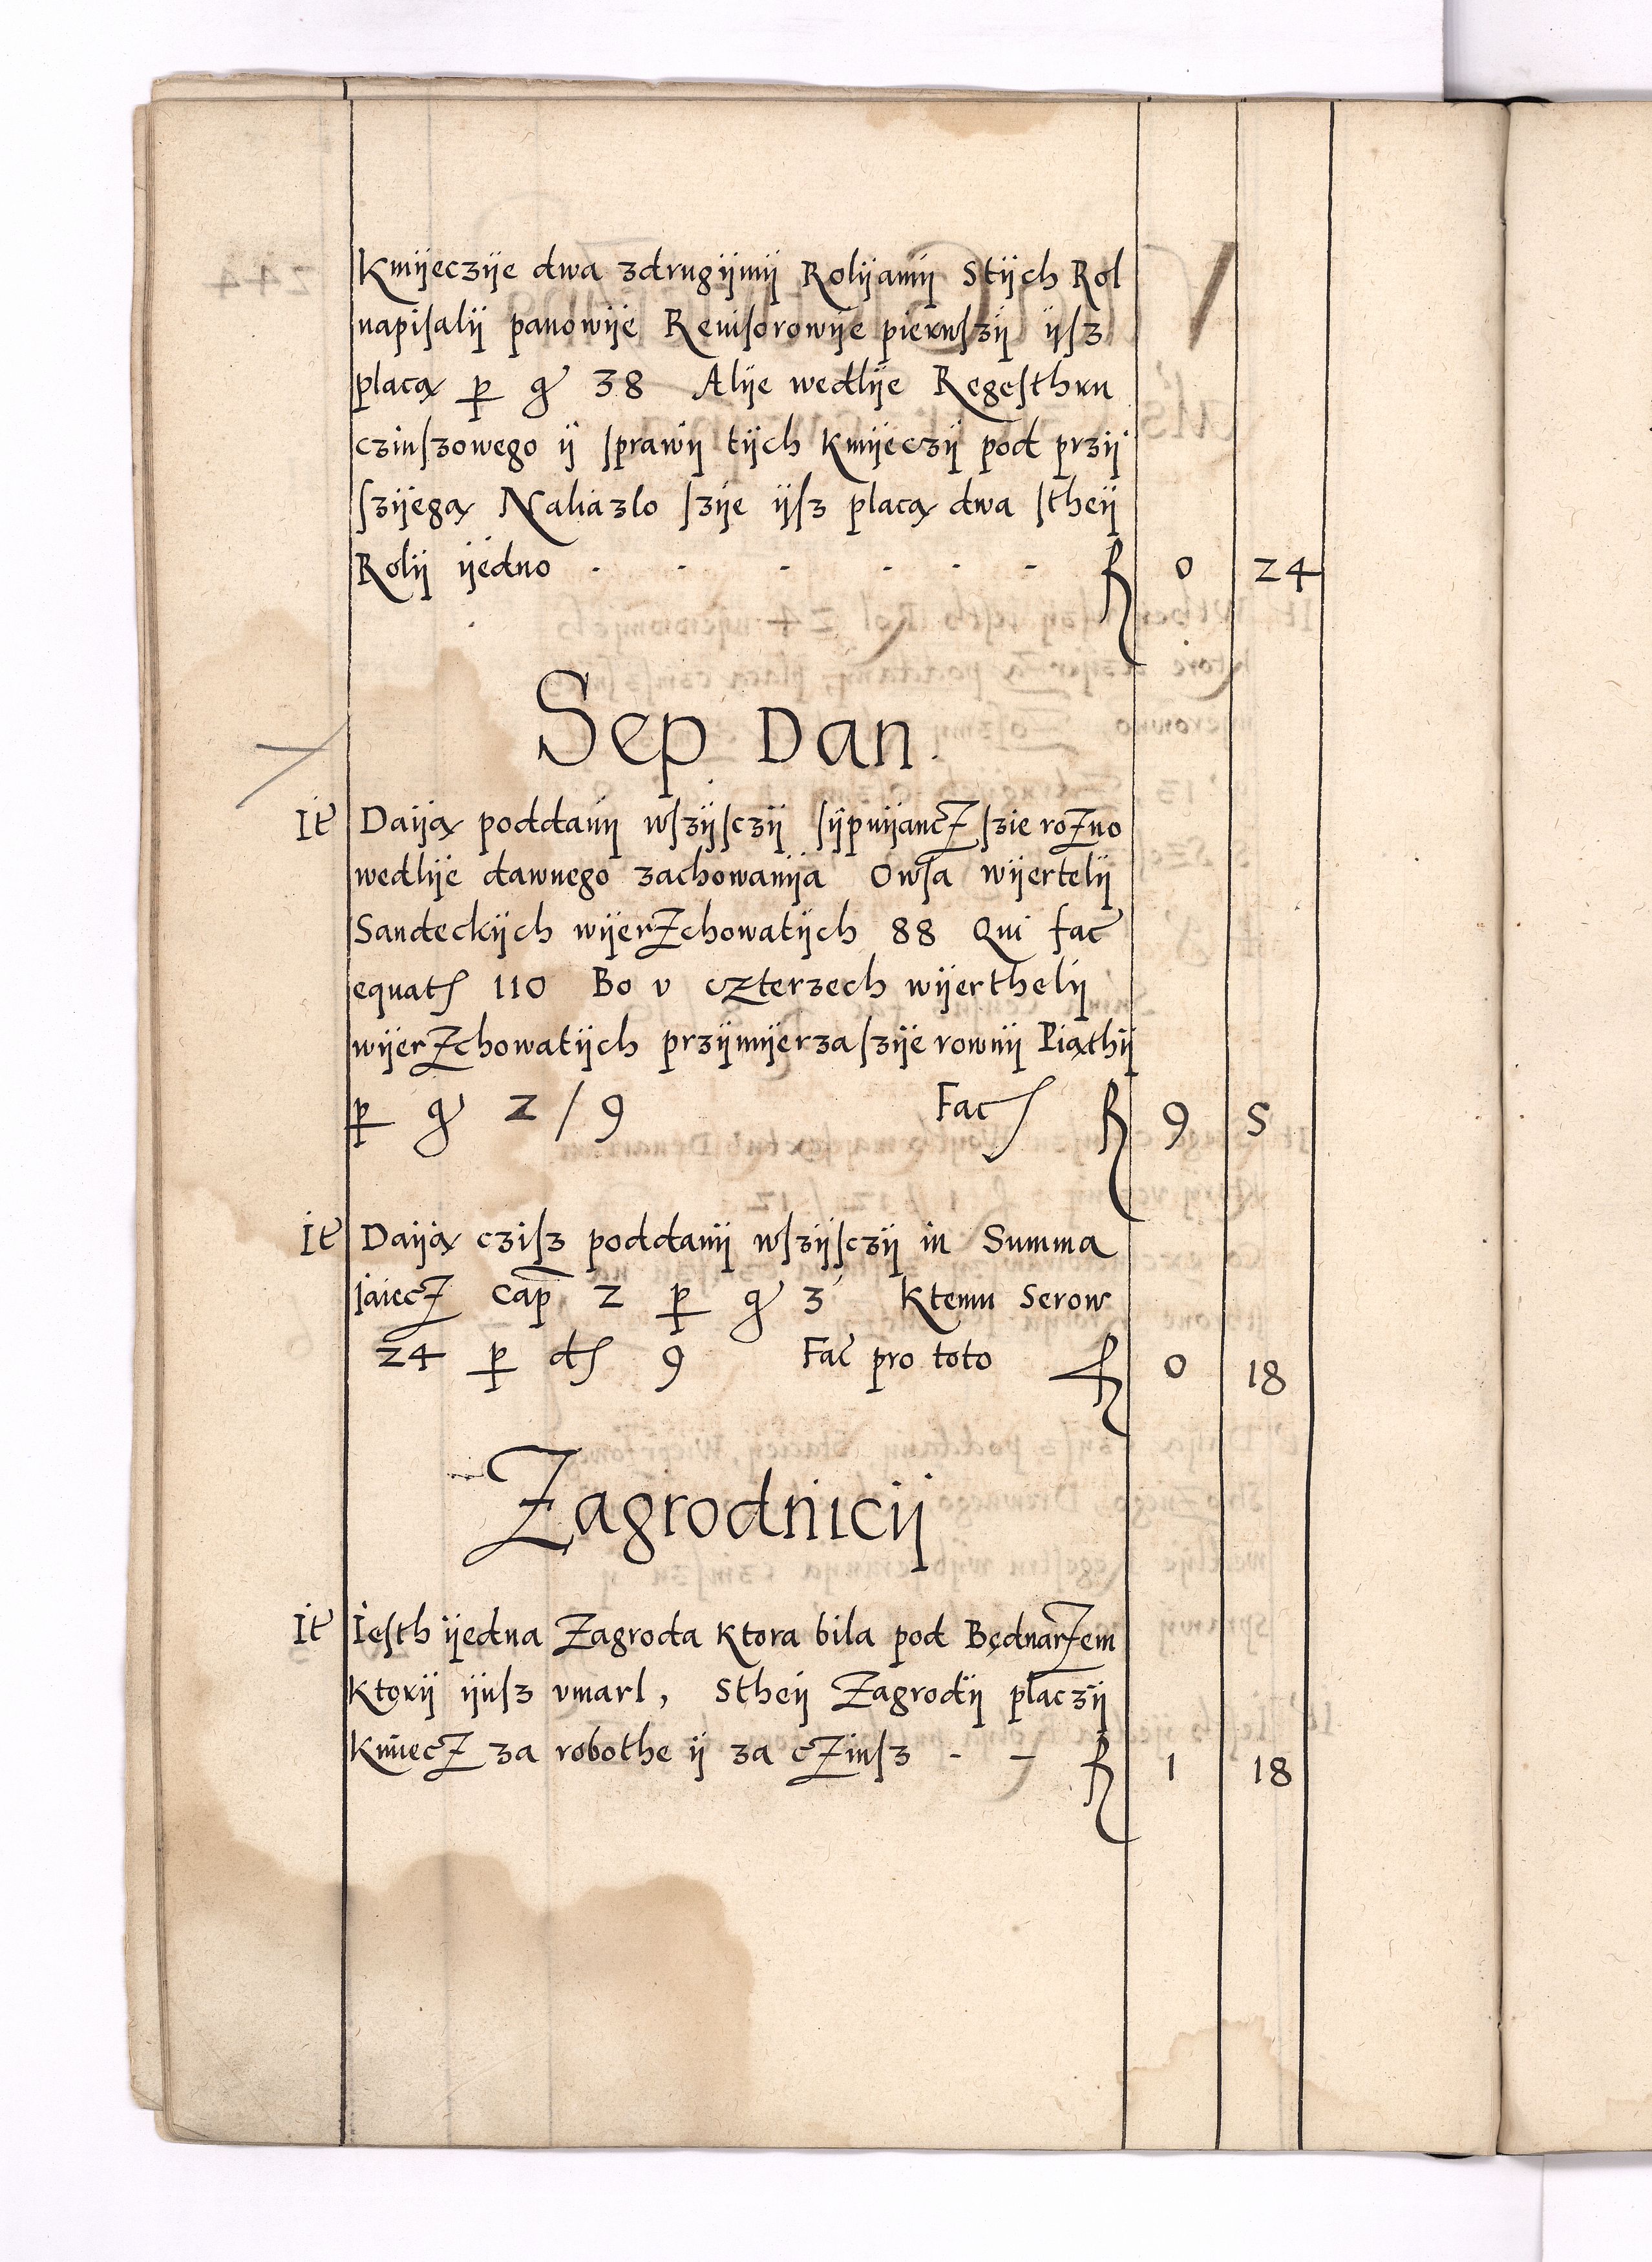 Kmÿeczÿe dwa zdrugÿmÿ Rolÿamÿ Stÿch Rol
napiſalÿ panowÿe Reuiſorowÿe pierwſzÿ ÿſz
placą p gr 38 Alÿe wedlÿe Regeſthru
czinſzowego ÿ ſprawÿ tÿch kmÿeczÿ pod przÿ
ſzÿegą Naliazlo ſzÿe ÿſz placą dwa ſtheÿ
Rolÿ ÿedno - - - - - - fl 0 24
Sep Dan
It Daÿą poddanÿ wſzÿſczÿ ſÿpuÿancz ſzie rożno
wedlÿe dawnego zachowanÿa Owſa wÿertelÿ
Sandeckÿch wÿerzchowatÿch 88 Qui fac
equat 110 Bo v czterzech wÿerthelÿ
wÿerzchowatÿch przÿmÿerza ſzÿe rownÿ Piąthÿ
p gr 2 / 9 Fac fl 9 5
It Daÿą cziſz poddanÿ wſzÿſczÿ in Summa
iaiecz Cap 2 p gr 3 ktemu Serow
24 p d 9 Fac pro toto fl 0 18
Zagrodnicÿ
It Ieſth ÿedna Zagroda ktora bila pod Będnarzem
ktorÿ ÿuſz vmarl, Stheÿ Zagrodÿ placzÿ
kmiecz za robothe ÿ za czinſz - - fl 1 18